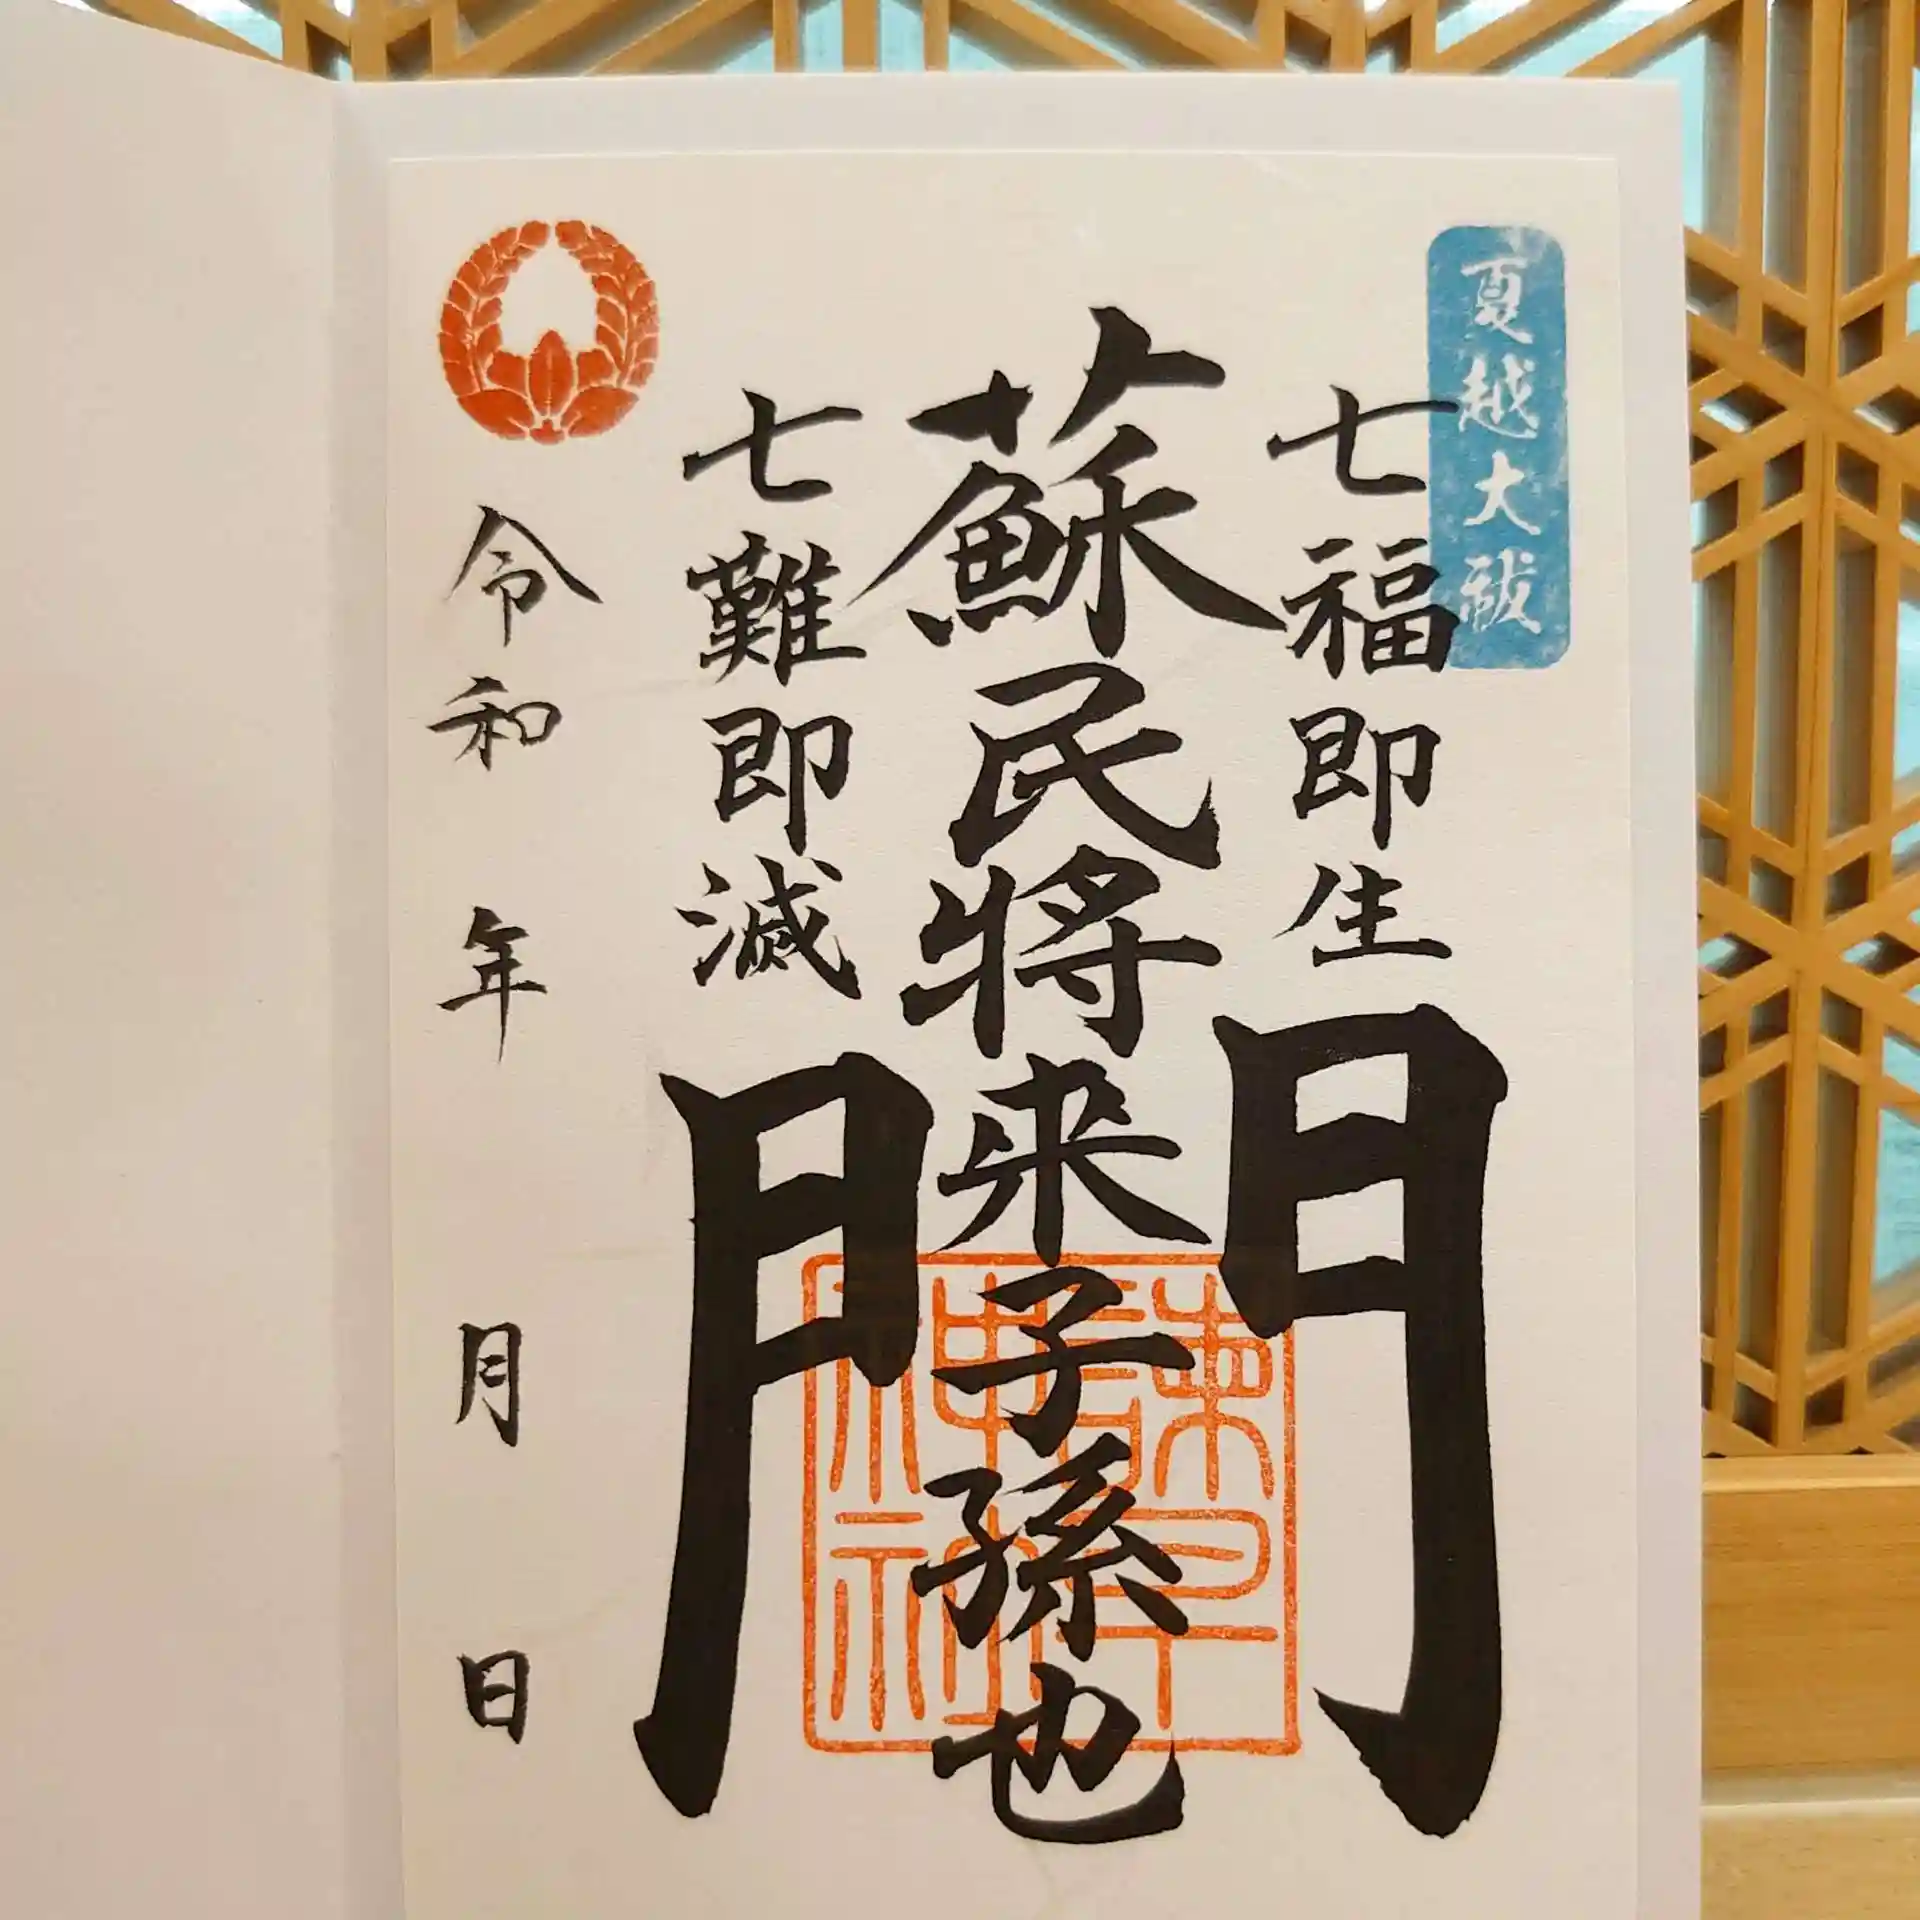 夏越大祓
七福即生
蘇民將来子孫也
門
七難即滅
令和 年 月 日
諫早
神社